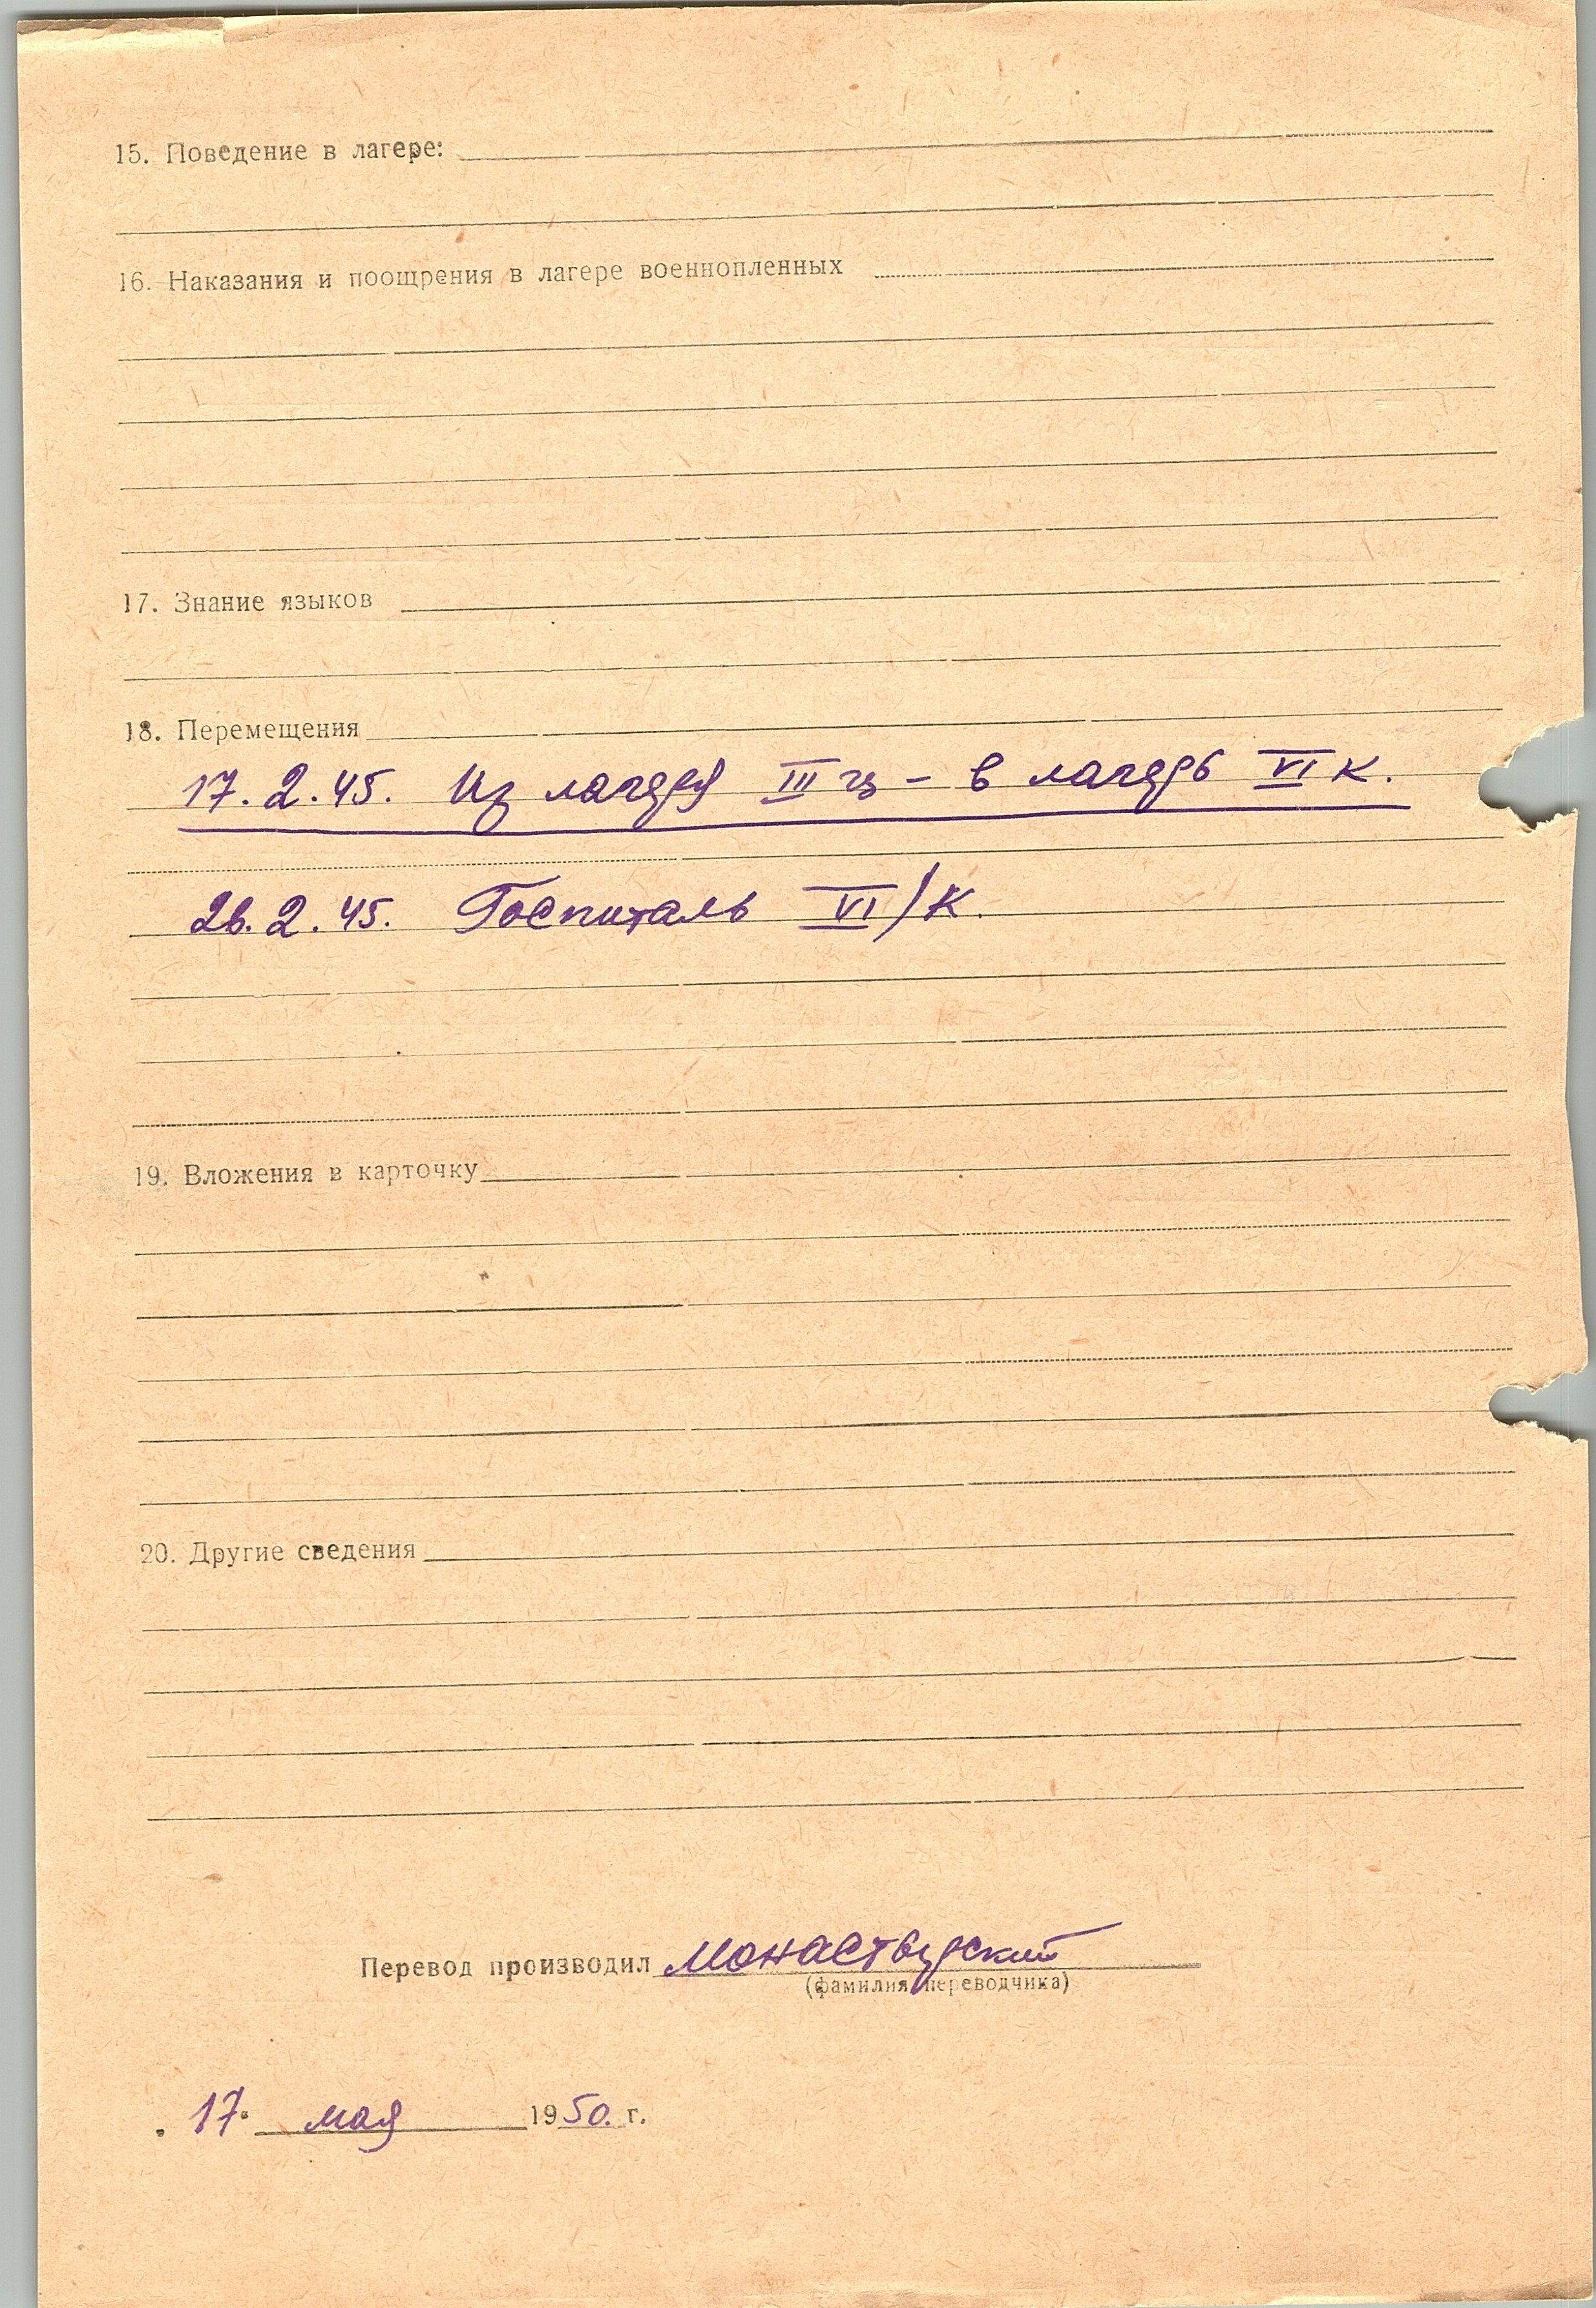 15. Поведение в лагере:
16. Наказания и поощрения в лагере военнопленных
17. Знание языков
18. Перемещения
17.2.45. Из лагеря III ц – в лагерь VI К.
26.2.45. Госпиталь VI/К.
19. Вложения в карточку
20. Другие сведения
Перевод производил Монастырский
(фамилия переводчика)
„ 17 " мая 1950. г.